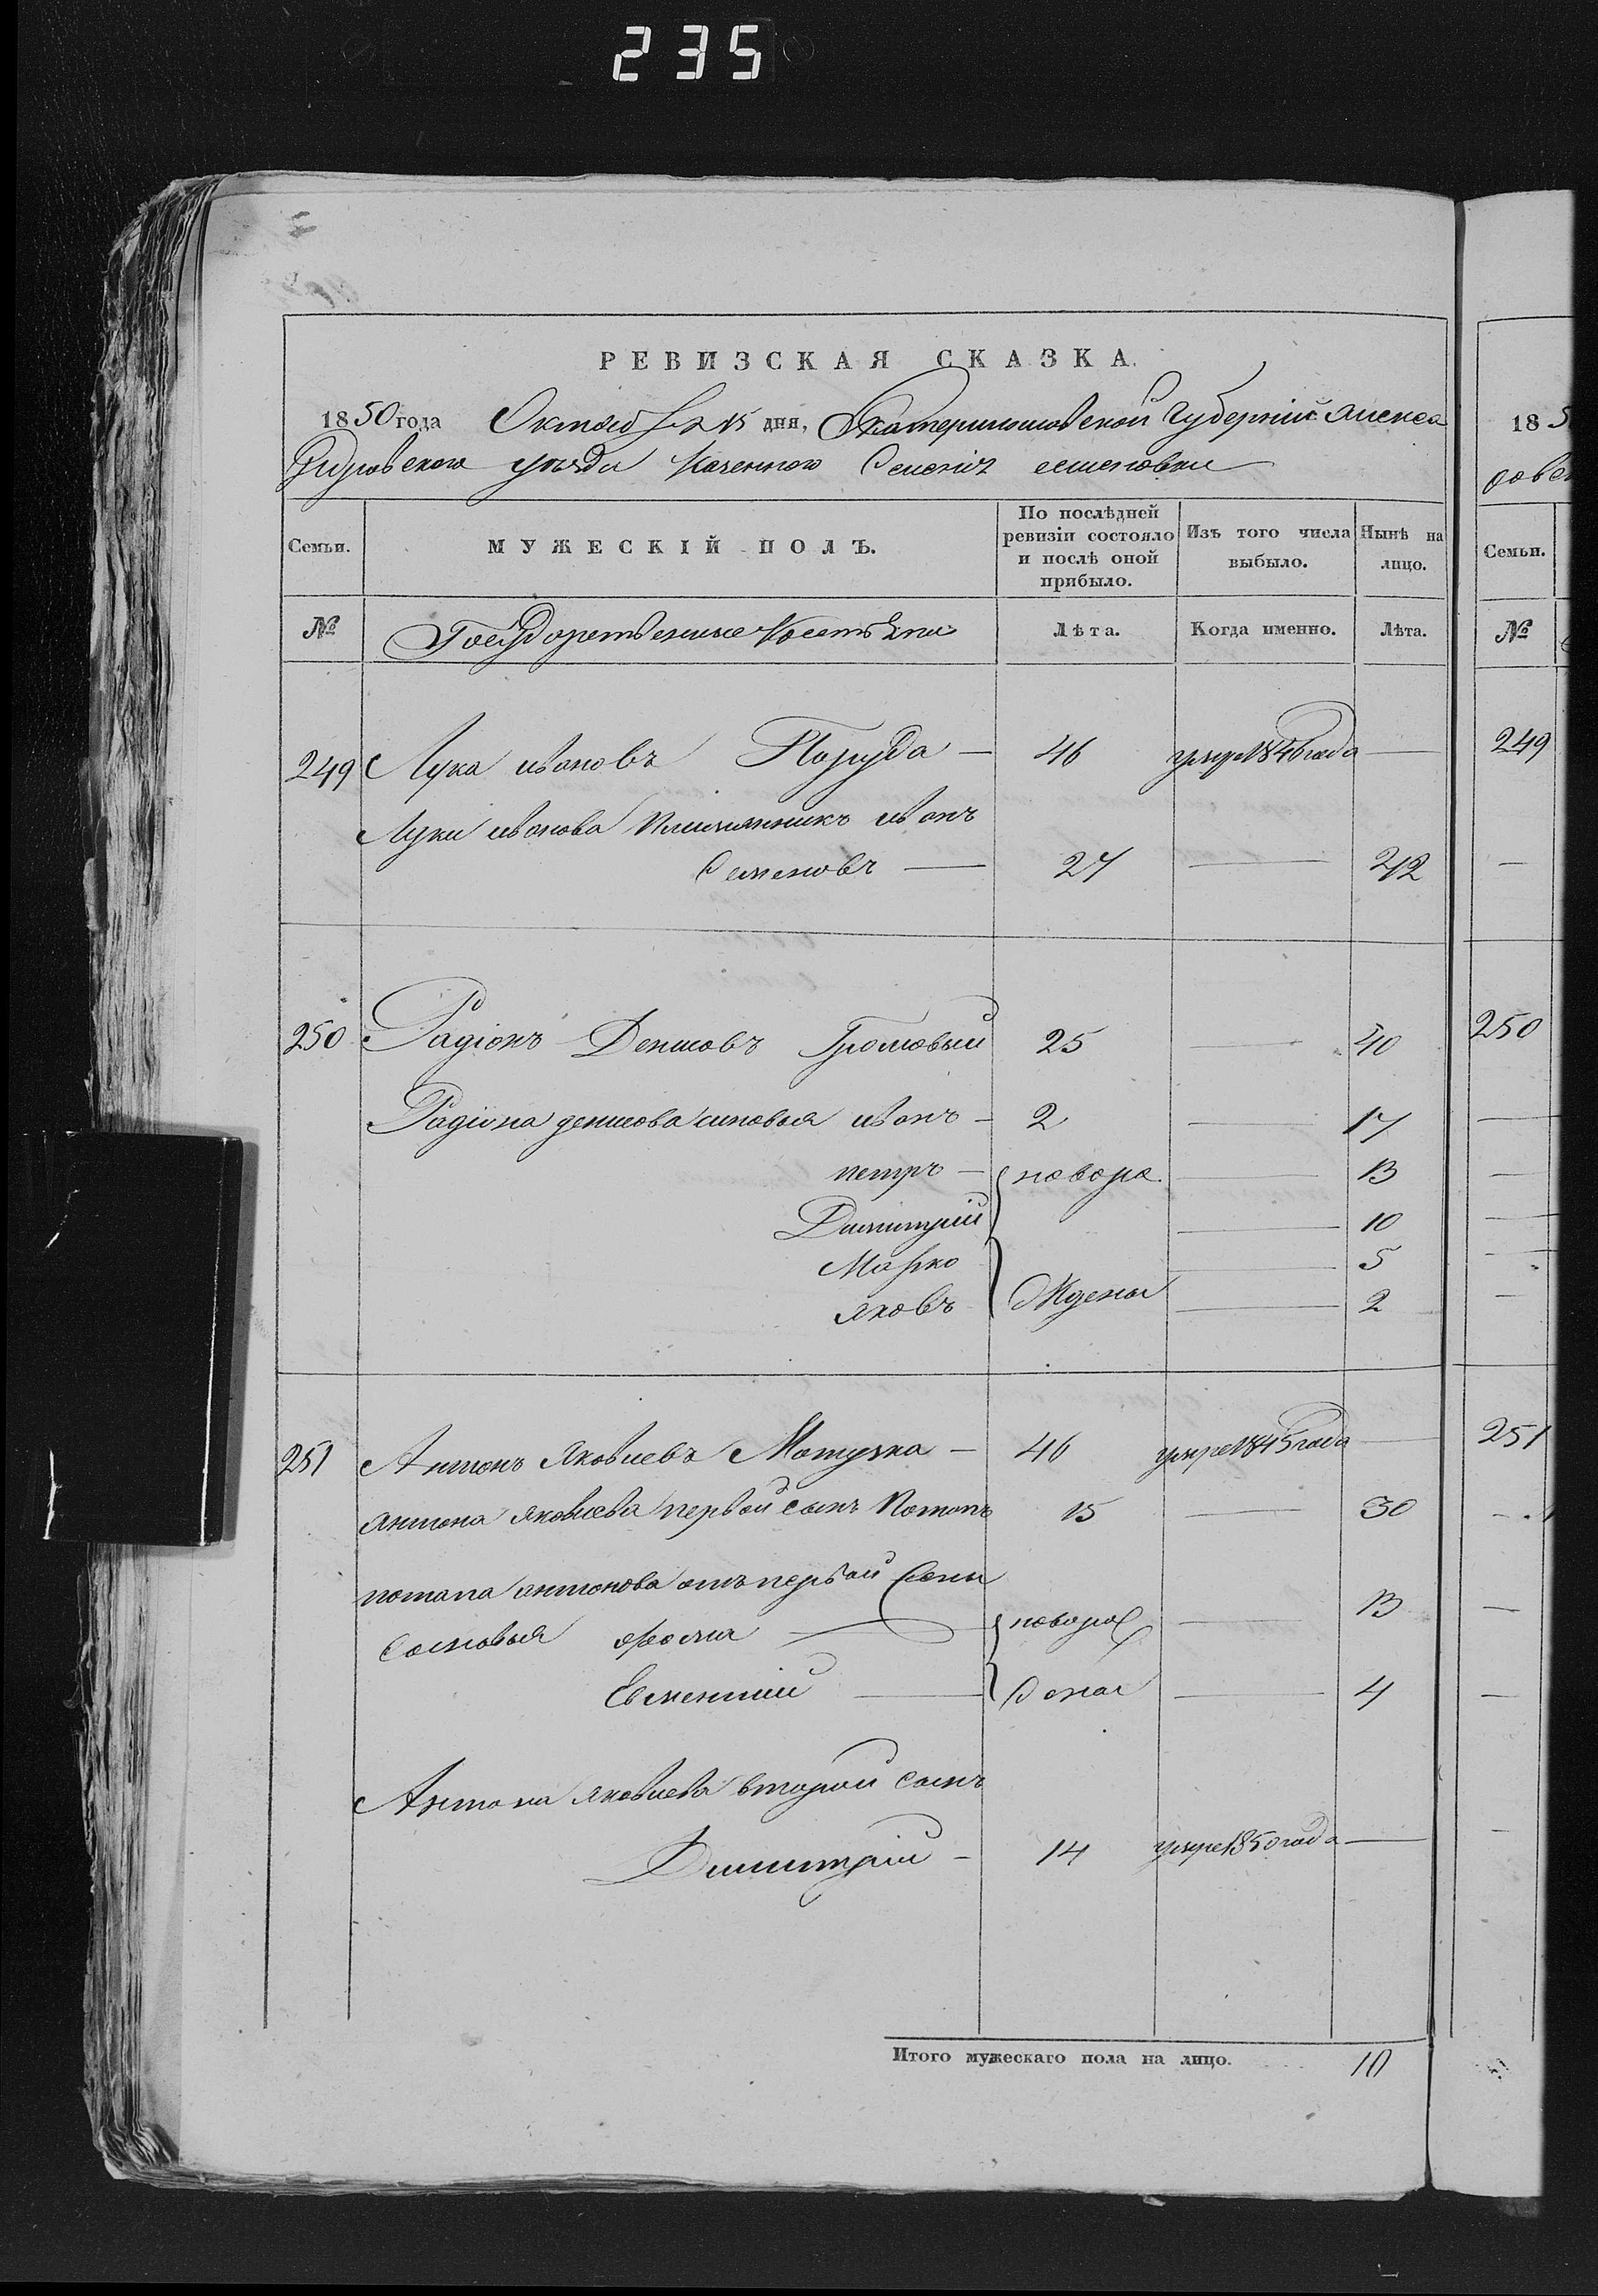 235
РЕВИЗСКАЯ СКАЗКА.
1850 года Октября 15 дня, Екатеринославской Губерніи Алекса
ндровскаго уѣзда Казенного Селенія
Семьи. МУЖЕСКІЙ ПОЛЪ. По послѣдней ревизіи состояло и послѣ оной прибыло. Изъ того числа выбыло. Нынѣ на лицо.
№ Государственные Крестьяне Лѣта. Когда именно. Лѣта.
249 Лука ивановъ — 46 умре 1846 года —
Луки иванова племянникъ иванъ
Семеновъ — 27 — 42
250 Радіонъ Денисовъ Громовый 25 — 40
Радіона денисова сыновья иванъ — 2 — 17
петръ — новоро — 13
Димитрій — 10
Марко — 5
яковъ ждены — 2
251 Антонъ Яковлевъ — 46 умре 1845 года —
антона яковлева первой сынъ Потапъ 15 — 30
потапа антонова отъ первой жены
сыновья фома — новорож — 13
Евментий — дены — 4
Антона яковлева второй сынъ
Димитрій — 14 умре 1850 года —
Итого мужескаго пола на лицо. 10
18 5
Семьи.
№
249
250
251